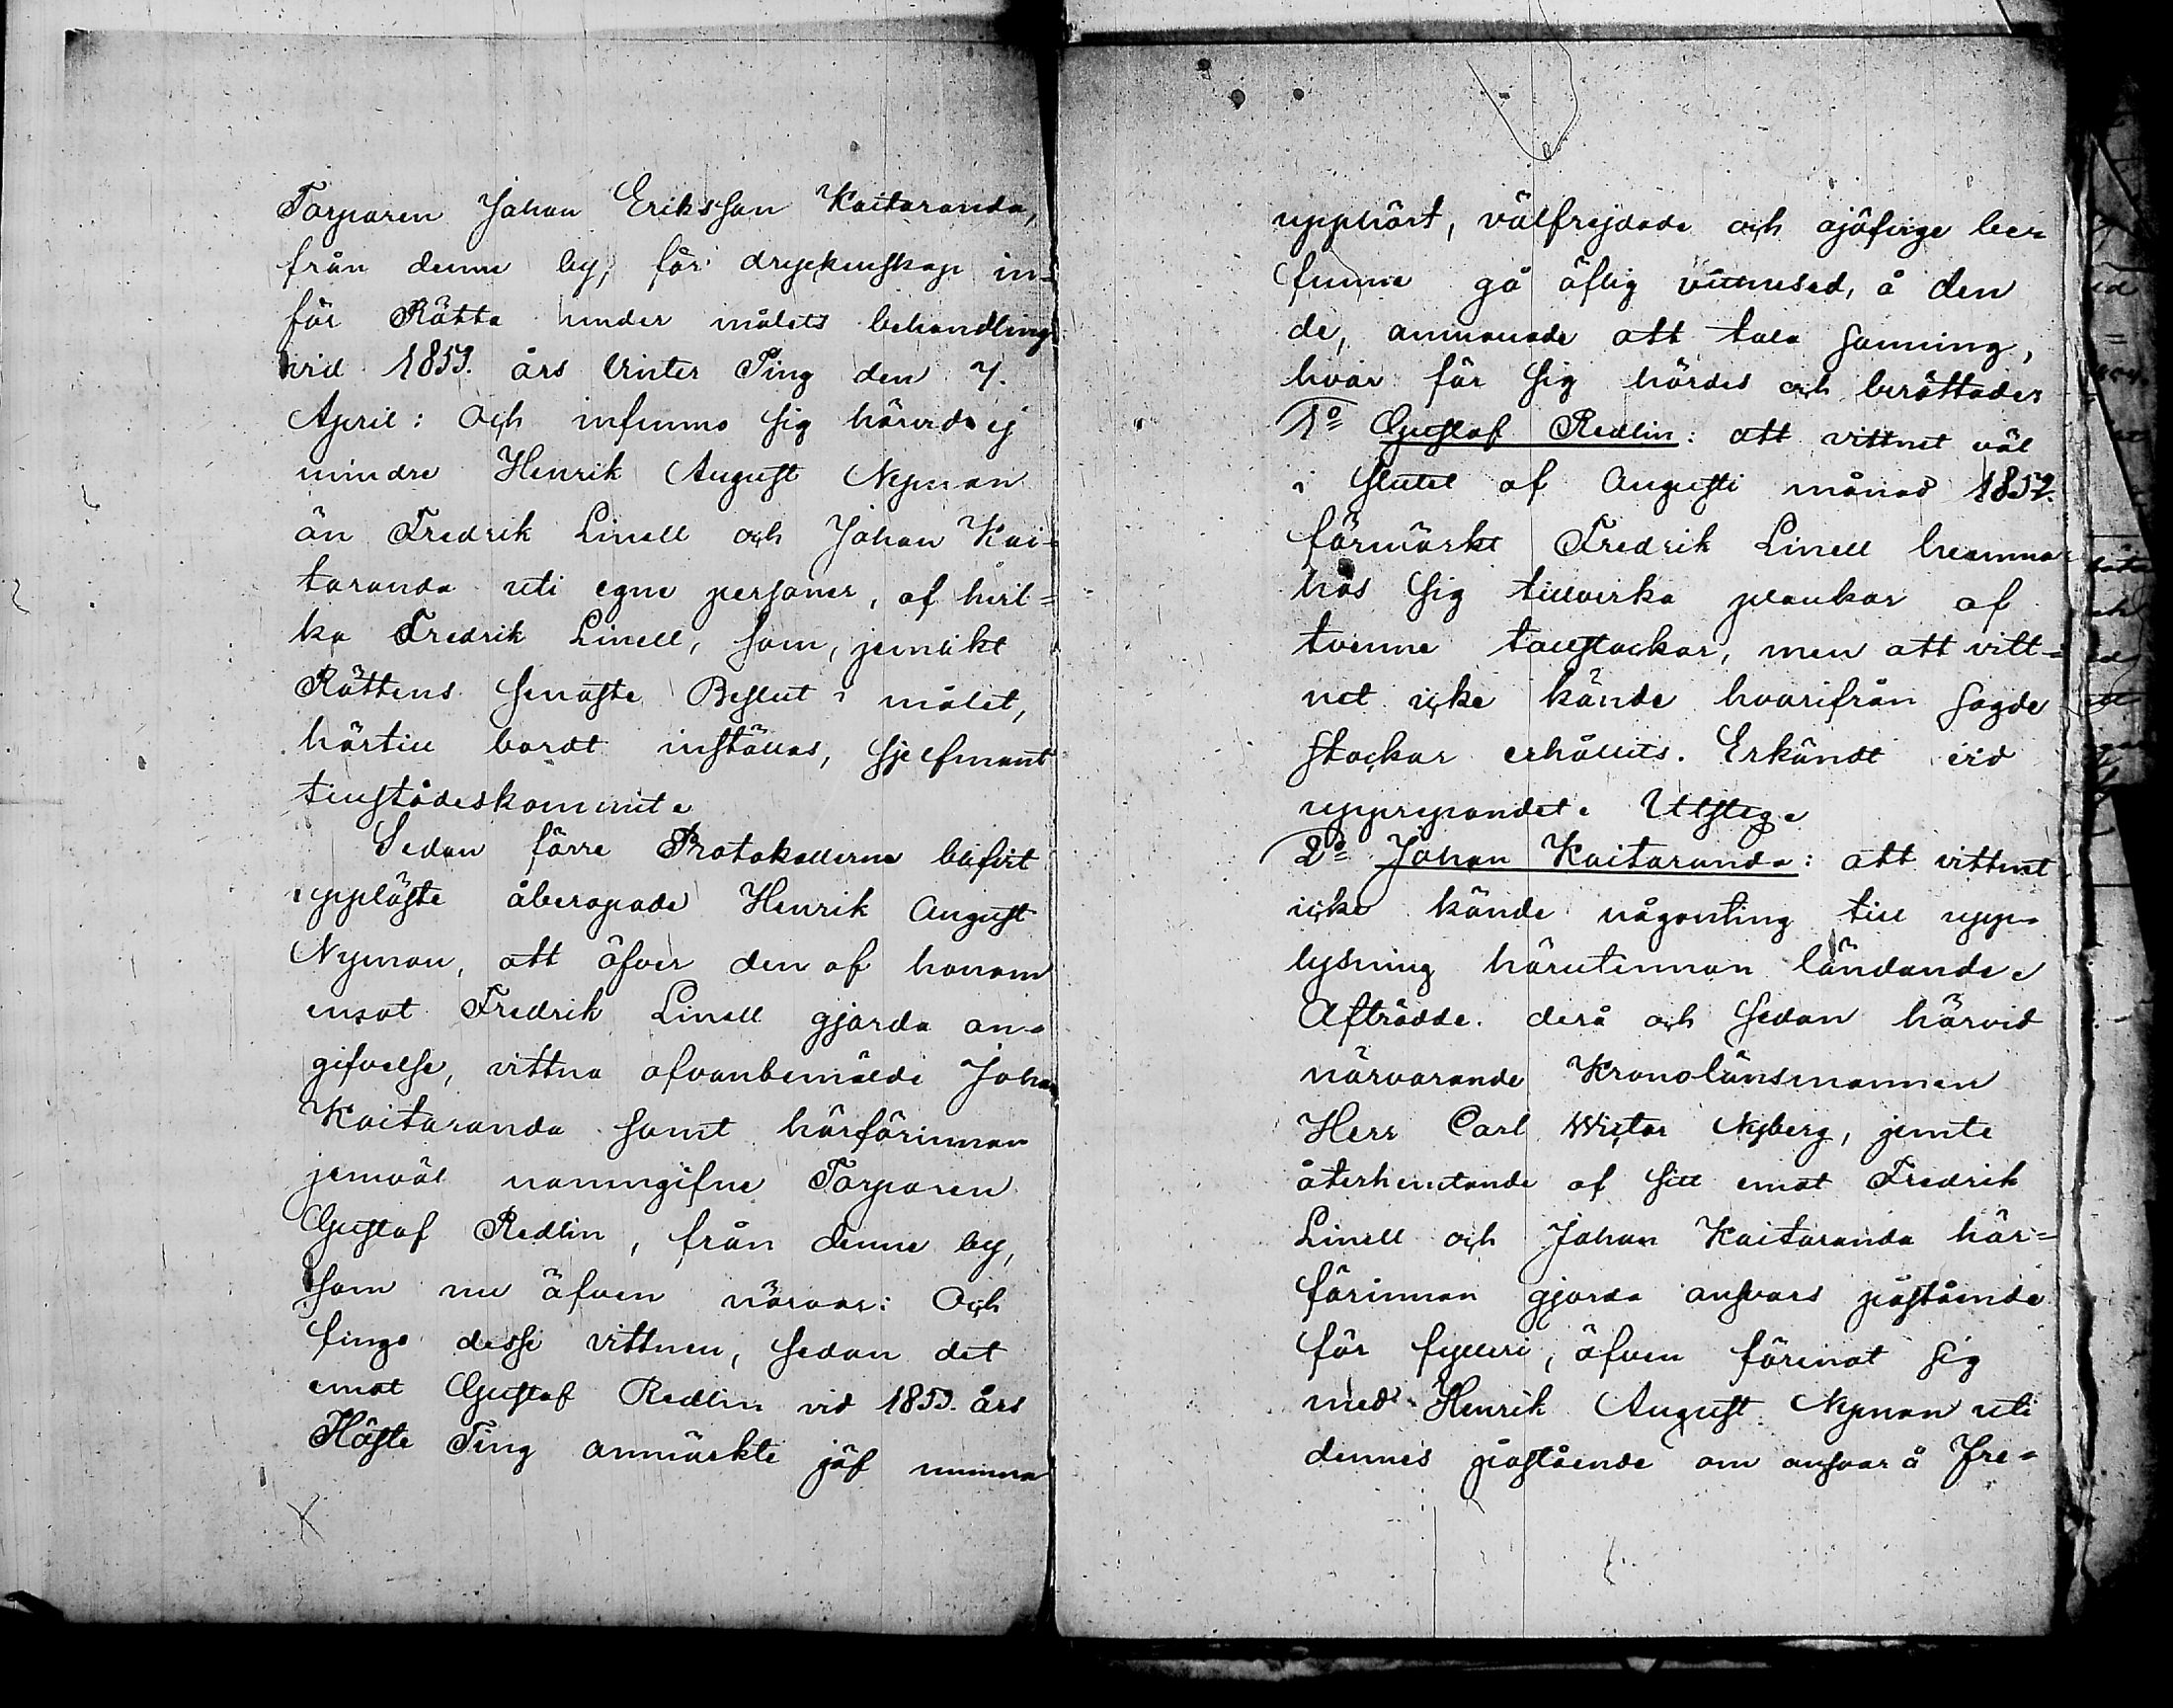 Torparen Johan Eriksson Kaitaranda,
från denne by, för dryckenskap in-
för Rätta under målets behandling
vid 1853. års Vinter Ting den 7.
April: Och infunno sig härvid ej
mindre Henrik August Nyman
än Fredrik Linell och Johan Kai-
taranda uti egne personer, af hvil=
ka Fredrik Linell, som, jemlikt
Rättens senaste Beslut i målet,
härtill bordt inställas, sjelfmant
tillstädeskommit.
Sedan förre Protokollerne blifvit
uppläste åberopade Henrik August
Nyman, att öfver den af honom
emot Fredrik Linell gjorda an-
gifvelse, vittna ofvanbemälde Johan
Kaitaranda samt härförinnan
jemväl namngifne Torparen
Gustaf Redlin, från denne by,
som nu äfven närvar: Och
fingo desse vittnen, sedan det
emot Gustaf Redlin vid 1853. års
Höste Ting anmärkte jäf numera
upphört, välfrejdade och ojäfvige be-
funne gå äflig vittnesed, å den
de, anmanade att tala sanning,
hvar för sig hördes och berättade:
1o Gustaf Redlin: att vittnet väl
i slutet af Augusti månad 1852.
förmärkt Fredrik Linell hemma
hos sig tillverka plankor af
tvenne tallstockar, men att vitt=
net icke kände hvarifrån sagde
stockar erhållits. Erkändt vid
upprepandet. Utsteg.
2o Johan Kaitaranda: att vittnet
icke kände någonting till upp-
lysning härutinnan ländande.
Afträdde. derå och sedan härvid
närvarande Kronolänsmannen
Herr Carl Wictor Nyberg, jemte
återhemtande af sitt emot Fredrik
Linell och Johan Kaitaranda här=
förinnan gjorda ansvars påstående
för fylleri, äfven förenat sig
med Henrik August Nyman uti
dennes påstående om ansvar å Fre=